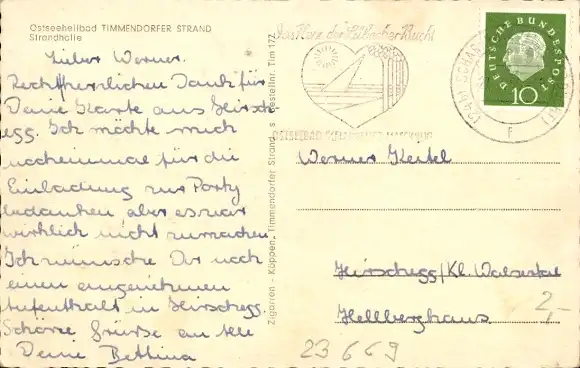 Ostseeheilbad TIMMENDORFER STRAND
Strandhalle
Lieber Werner.
Recht herzlichen Dank für
Deine Karte aus Hirsch-
egg. Ich möchte mich
nocheinmal für die
Einladung zur Party
bedanken, aber es war
wirklich nicht zu machen
Ich wünsche Dir noch
einen angenehmen
Aufenthalt in Hirschegg.
Grüsse an alle
Deine Bettina
Zigarren - Köppen, Timmendorfer Strand Bestellnr. Tim 172
Das Herz der Lübecker Bucht
OSTSEEBAD
SCHARBEUTZ
F
DEUTSCHE BUNDESPOST
10
Werner Keitel
Hirschegg/Kl. Walsertal
Hellberghaus
2,-
23669